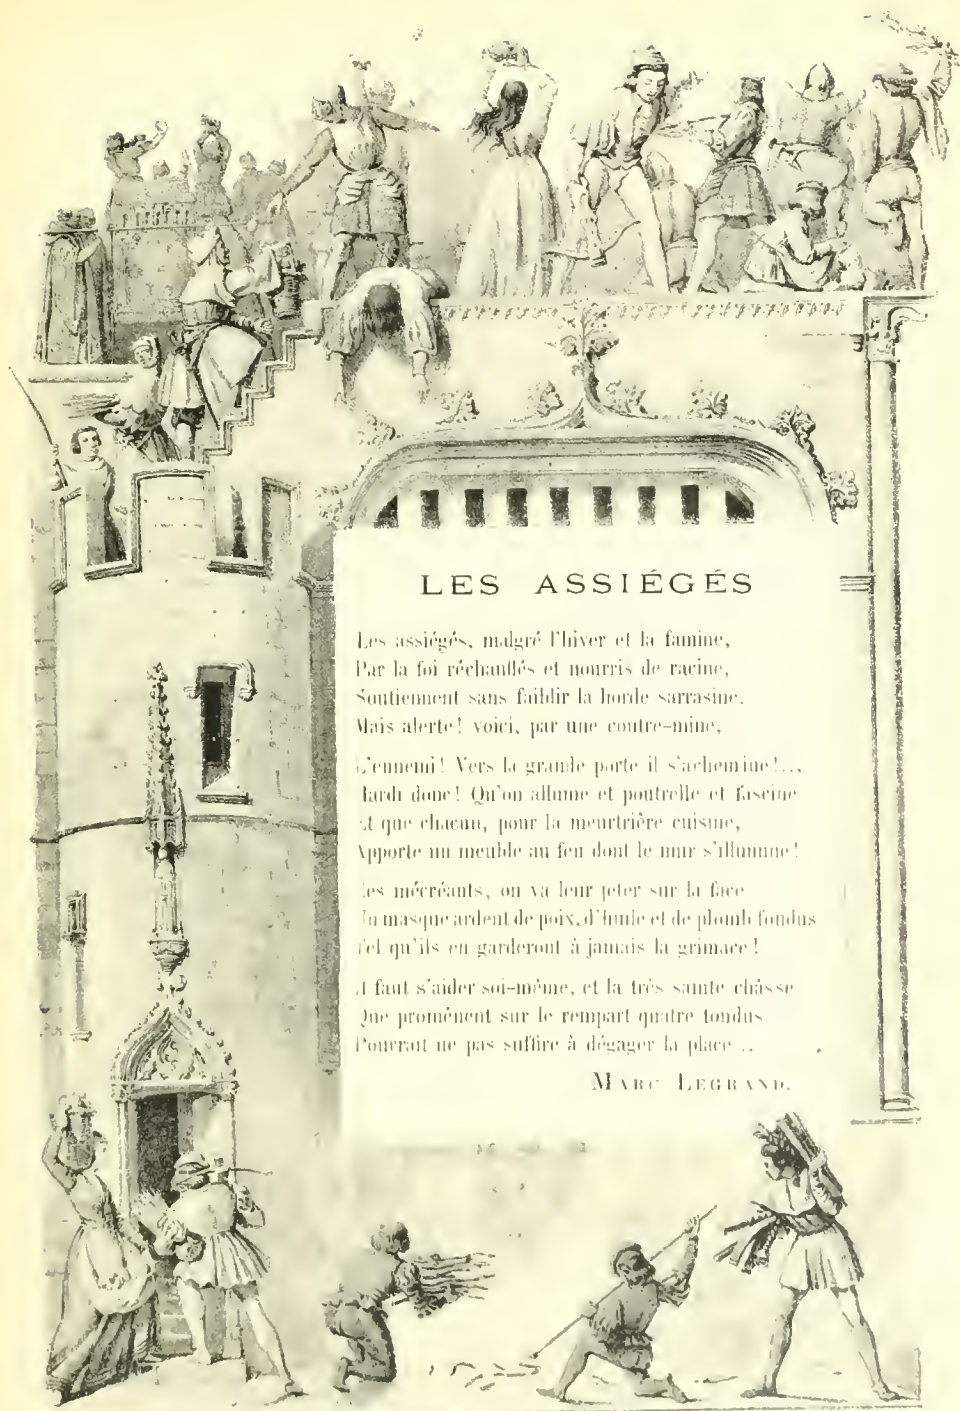 LES ASSIÉGÉS
Les assiégés, malgré l'hiver et la famine,
Par la foi réchauffés et nourris de racine,
Soutiennent sans faiblir la horde sarrasine.
Mais alerte! voici, par une contre-mine,
L'ennemi! Vers la grande porte il s'achemine!...
Hardi donc! Qu'on allume et poutrelle et fascine
Et que chacun, pour la meurtrière cuisine,
Apporte un meuble au feu dont le mur s'illumine!
Les mécréants, on va leur jeter sur la face
Un masque ardent de poix, d'huile et de plomb fondus
Tel qu'ils en garderont à jamais la grimace!
Il faut s'aider soi-même, et la très sainte châsse
Que promènent sur le rempart quatre tondus
Pourrait ne pas suffire à dégager la place...
MARC LEGRAND.